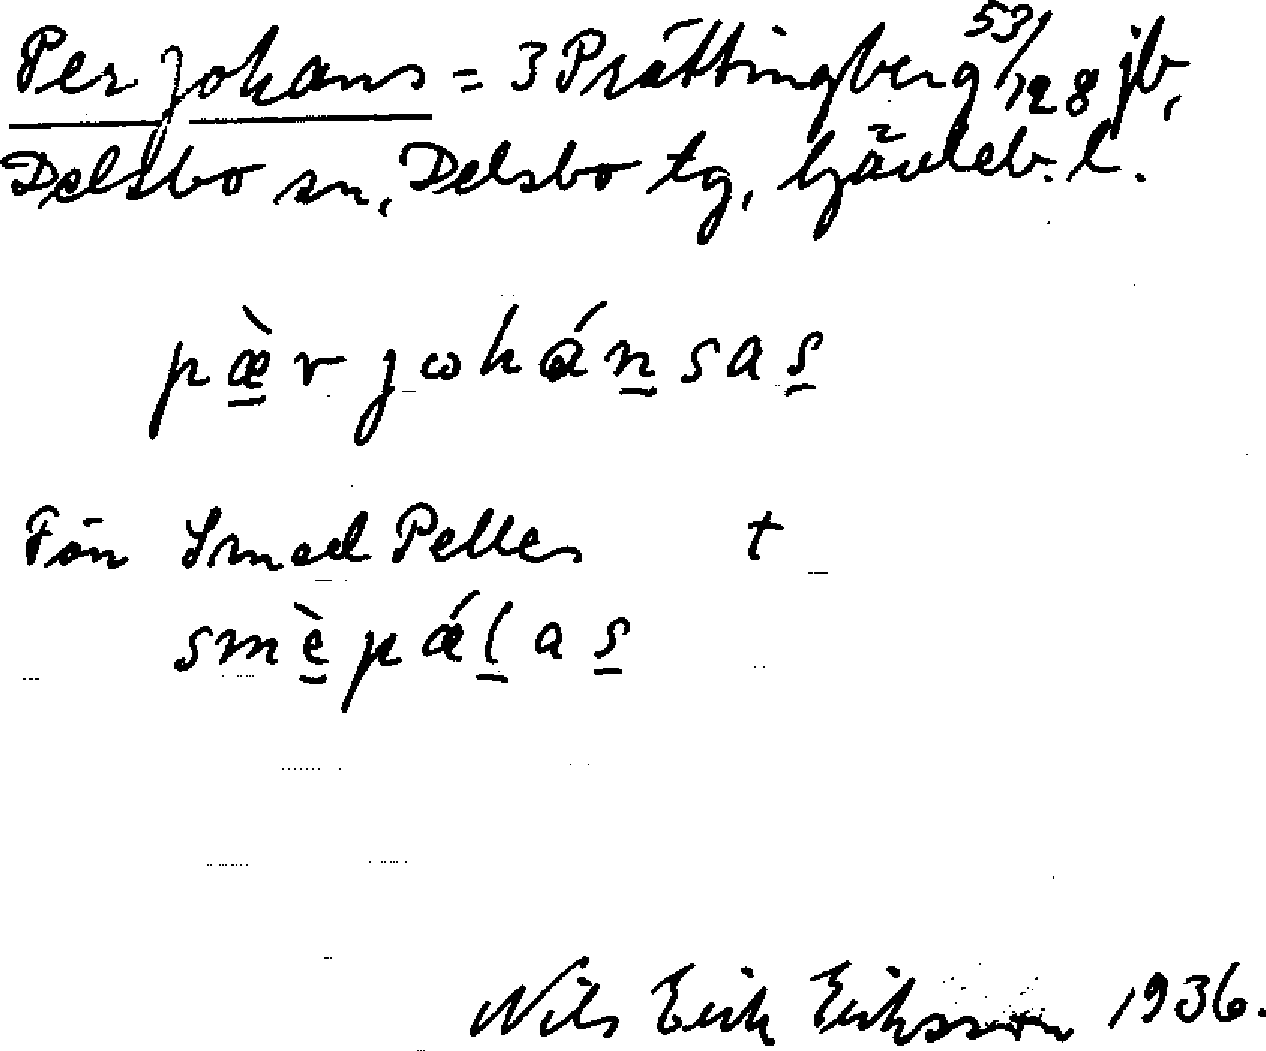 Per Johans = 3 Prästingberg 53/128 jb,
Delsbo sn, Delsbo tg, Gävleb. l.
pæ̀r johánsas
Från Smed Pelles t
smèpálas
Nils Erik Eriksson 1936.